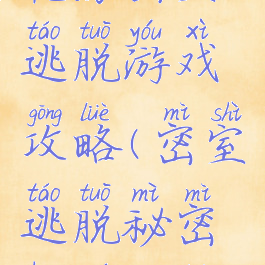 táo tuō yóu xì
逃脱游戏
gōng lüè mì shì
攻略(密室
táo tuō mì mì
逃脱秘密